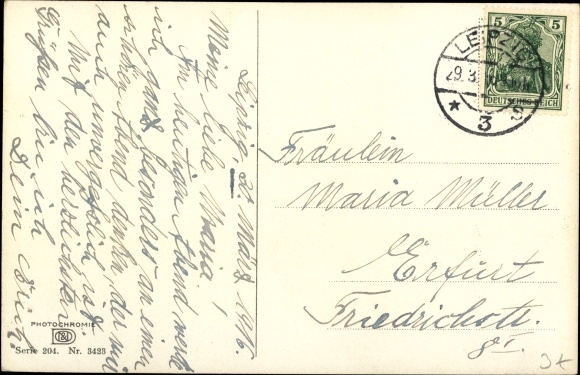 Leipzig, 28. März 1916.
Meine liebe Maria!
An heutigen Abend werde
ich ganz besonders an einen
schönen Abend denken, der mir
auch unvergeßlich ist.
Mit den herzlichsten
Grüßen bin ich
Dein
Fräulein
Maria Müller
Erfurt
Friedrichstr.
LEIPZIG
29.3.
* 3
5 5
DEUTSCHES REICH
PHOTOCHROMIE
Serie 204. Nr. 3423